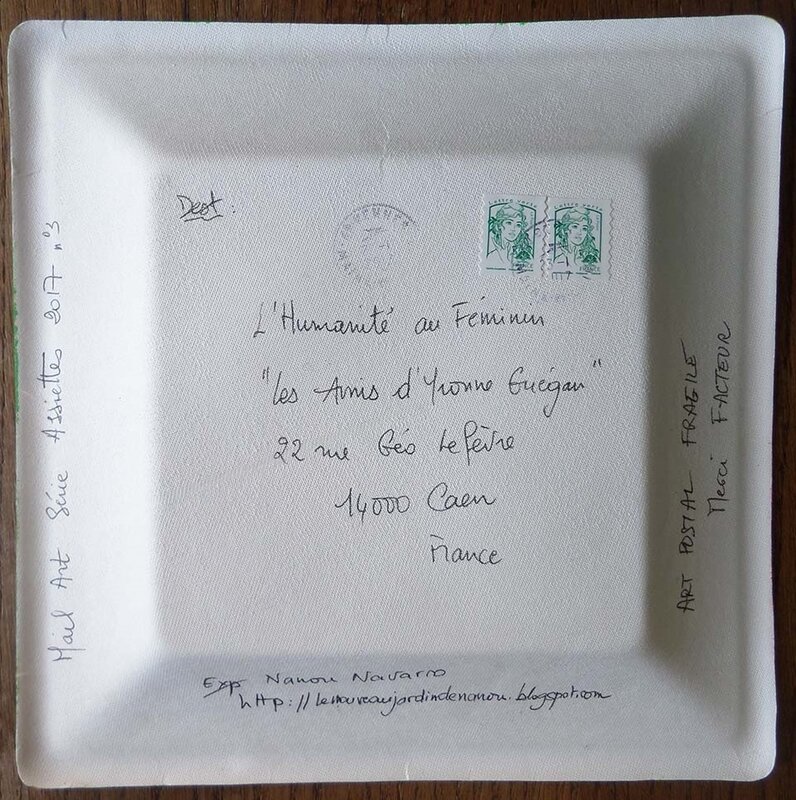 Dest :
L'Humanité au Féminin
"Les Amis d'Yvonne Guégan"
22 rue Géo Lefèvre
14000 Caen
France
Exp Nanou Navarro
http://lenouveaujardindenanou.blogspot.com
Mail Art Série Assiettes 2017 n°3
ART POSTAL FRAGILE
Merci FACTEUR
FRANCE